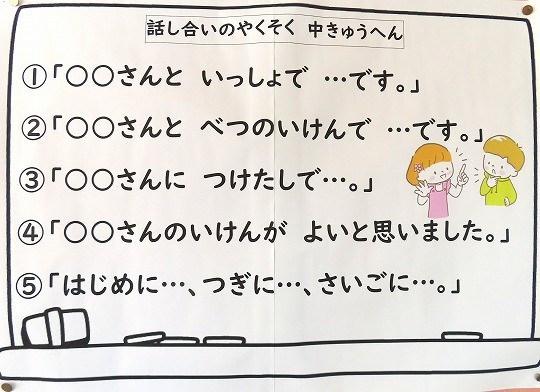 話し合いのやくそく 中きゅうへん
①「〇〇さんと いっしょで …です。」
②「〇〇さんと べつのいけんで …です。」
③「〇〇さんに つけたしで…。」
④「〇〇さんのいけんが よいと思いました。」
⑤「はじめに…、つぎに…、さいごに…。」